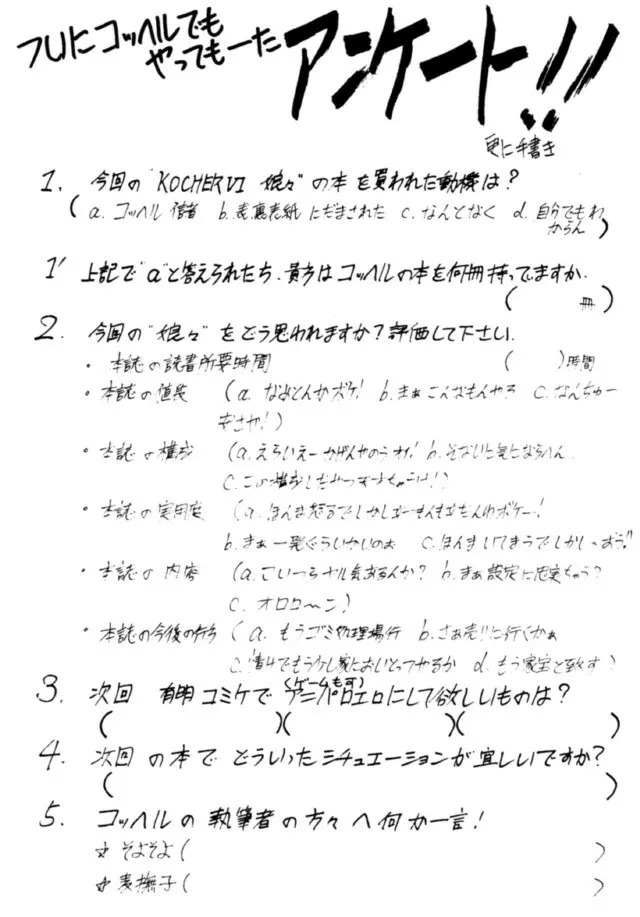 フリにコッヘルでも
やってもーた
アンケート!!
更に手書き
1. 今回の"KOCHER VI 娘々"の本を買われた動機は?
(a. コッヘル信者 b. 表裏表紙にだまされた c. なんとなく d. 自分でもわ
からん)
1' 上記で"a"と答えられたち、貴方はコッヘルの本を何冊持ってますか.
( 冊)
2. 今回の"娘々"をどう思われますか?評価して下さい.
・本誌の読書所要時間 ( )時間
・本誌の値段 (a. なめとんかボケ! b. まぁこんなもんやろ c. なんちゅー
安さや!)
・本誌の構成 (a. えらいえーかげんやのうわれ! b. そないに気にならへん
c. この構成
・本誌の実用度 (a. ほんま怒るでしかし
b. まぁ一発ぐらいかいのぉ c. ほんま
・本誌の内容 (a. こいつらナル気あるんか? b. まぁ設定に忠実ちゃう?
c. オロローン)
・本誌の今後の行方 (a. もうゴミ処理場行 b. さぁ売りに行くかぁ
c. 情けでもう少し家においとってやるか d. もう家宝と致す)
3. 次回 有明コミケで(ゲームも可)アニパロエロにして欲しいものは?
( )( )( )
4. 次回の本でどういったシチュエーションが宜しいですか?
( )
5. コッヘルの執筆者の方々へ何か一言!
☆そよそよ( )
☆麦撫子( )